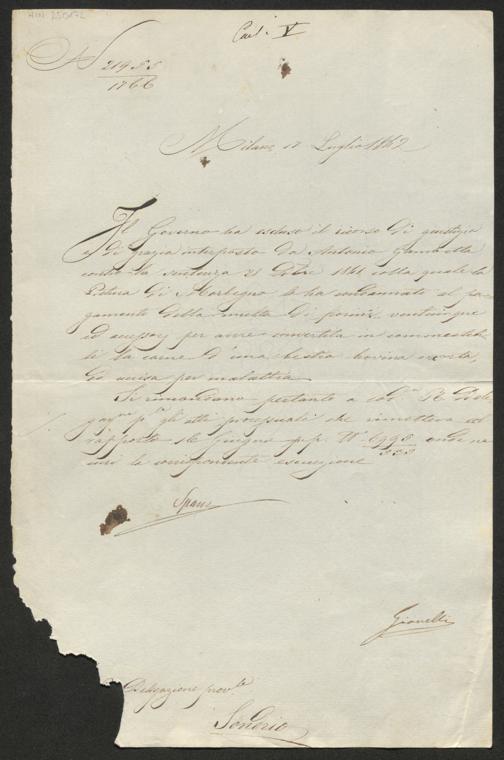 Cart. V
N 21955
1766
Milano, 12 Luglio 1842
Il Governo ha escluso il ricorso di giustizia
e di grazia interposto da Antonio
contro la sentenza 21 1841 colla quale la
Pretura di Morbegno lo ha condannato al pa-
gamento della multa di fiorini venticinque
ed accessorj per avere convertita in commestibi-
li la carne d'una bestia bovina morta,
od uccisa per malattia.
Si rimandano pertanto a cod.ª R. Dele
gaz.ne p.le gli atti processuali che rimetteva col
rapporto 16 Giugno p.p. N.º onde ne
curi la corrispondente esecuzione
Spaur
Delegazione prov.le
Sondrio